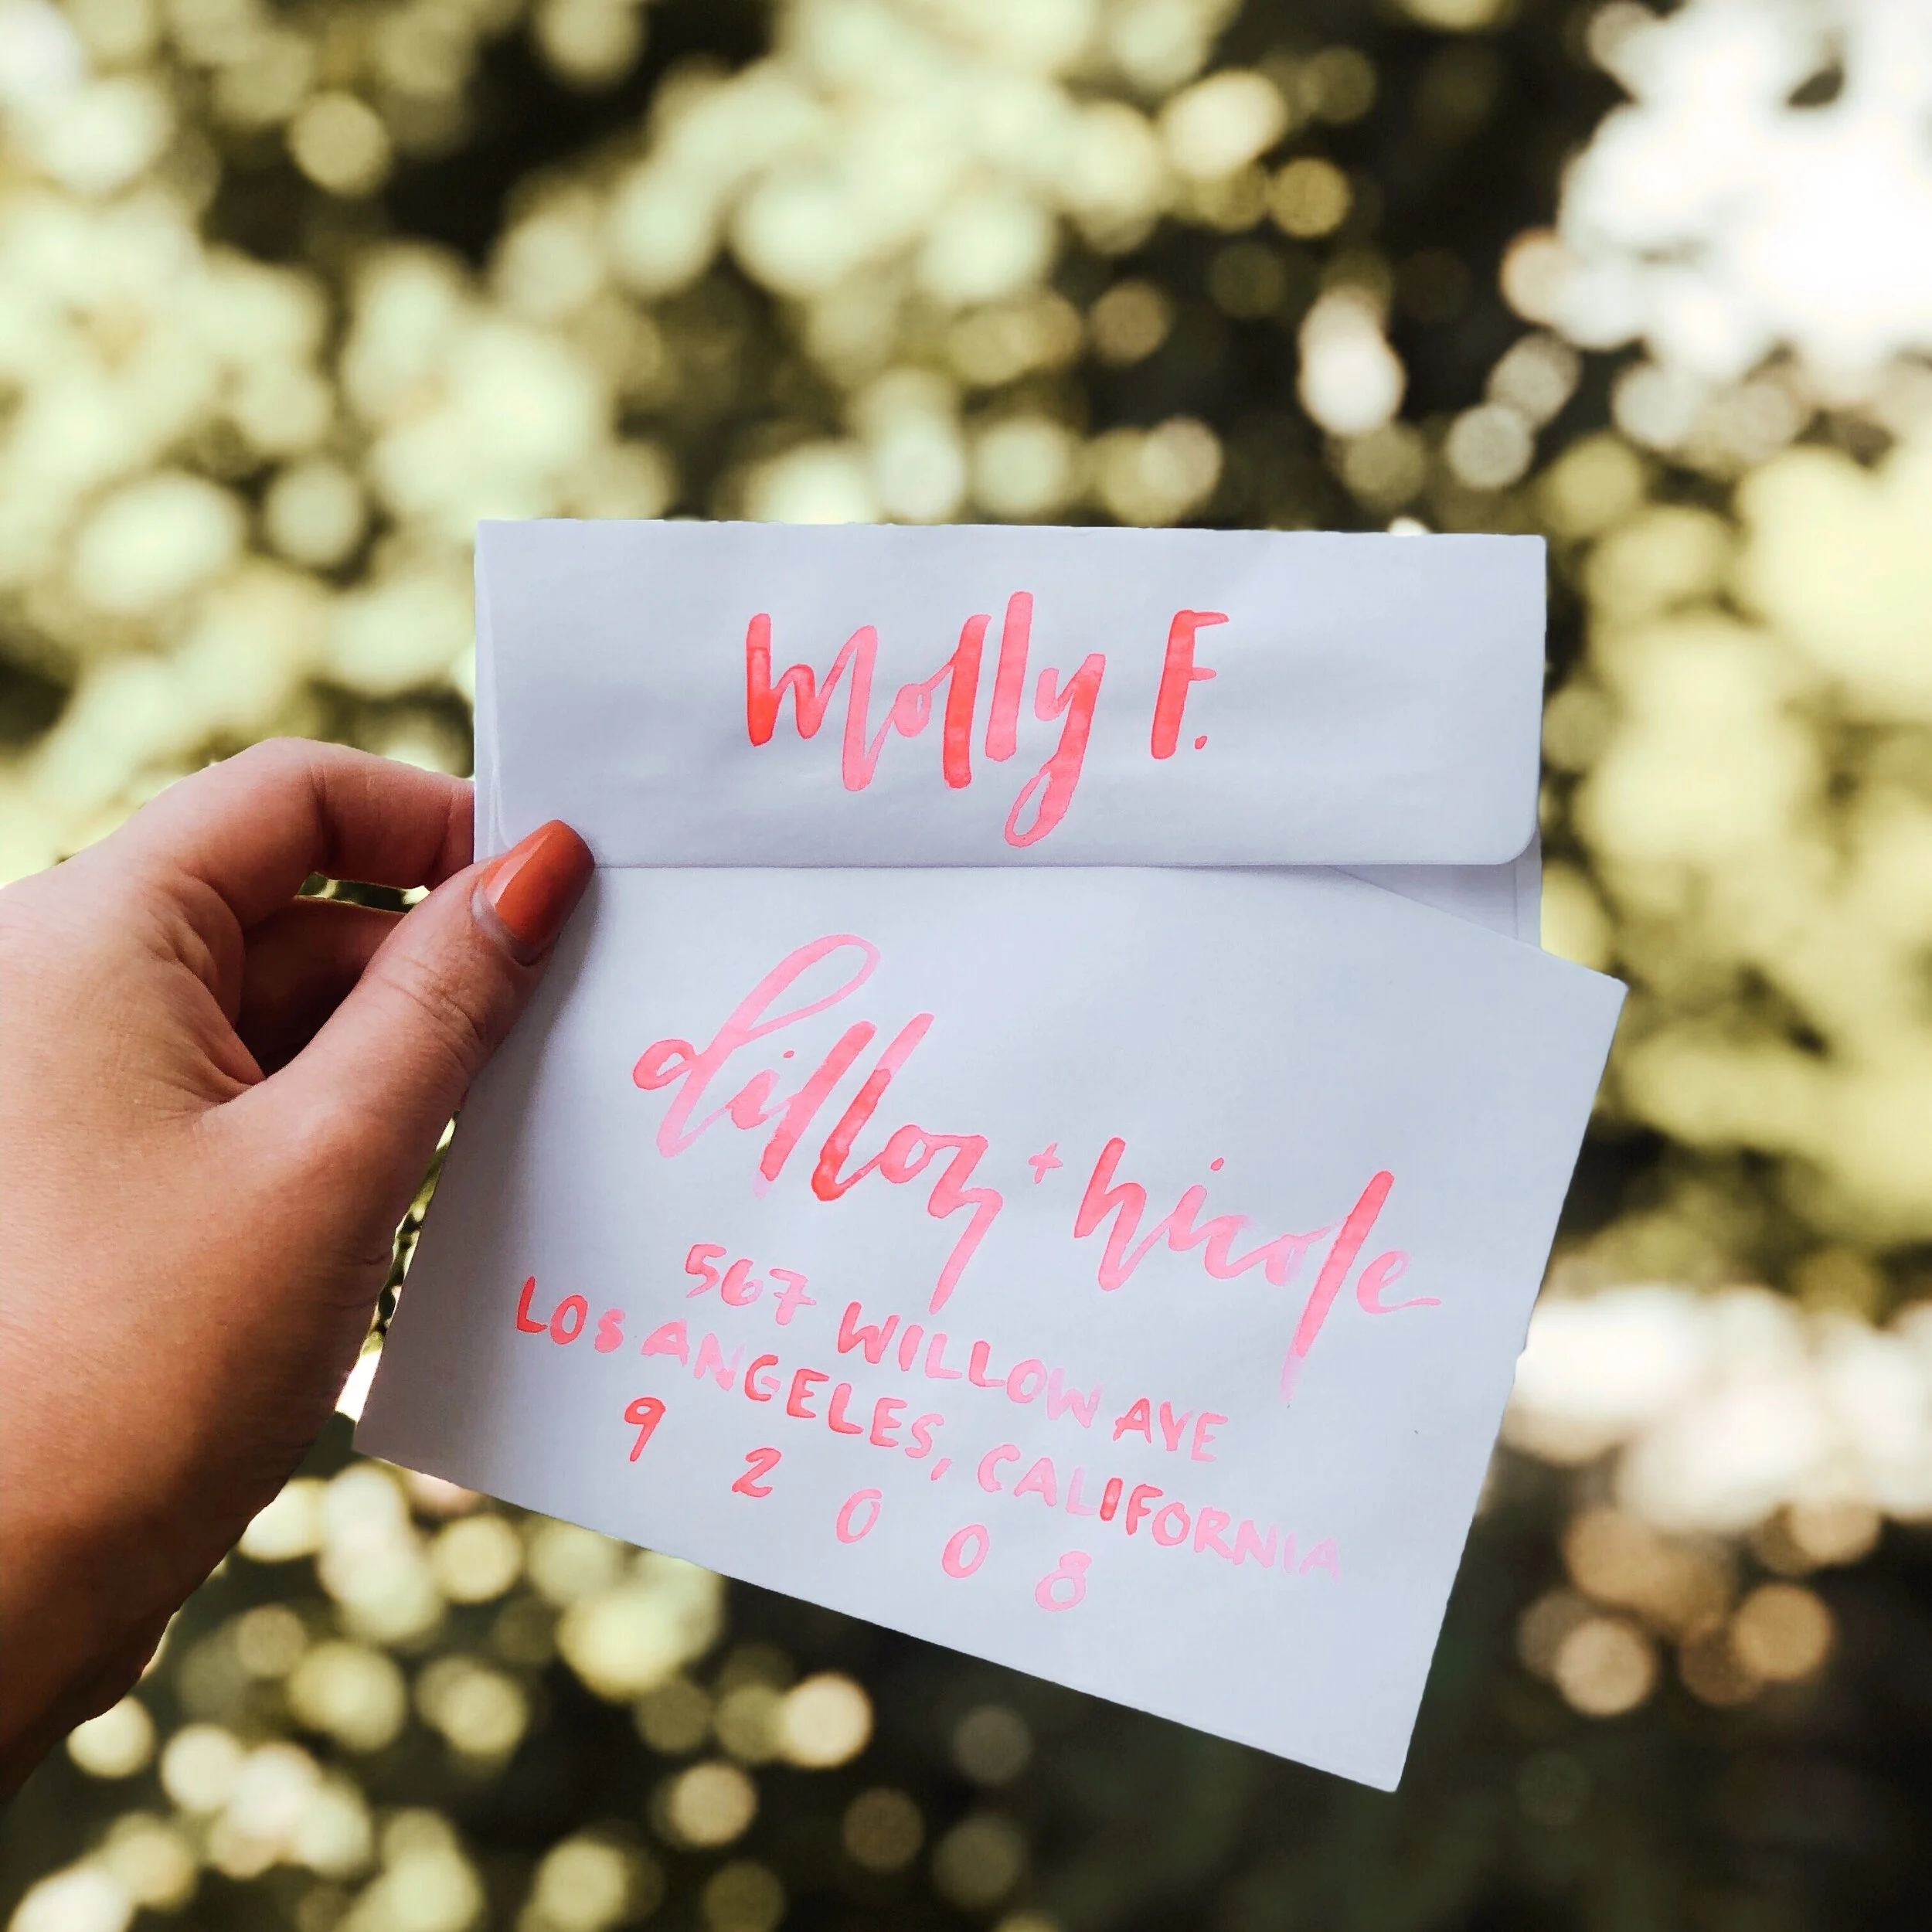 Molly F.
dillon + nicole
567 WILLOW AVE
LOS ANGELES, CALIFORNIA
9 2 0 0 8